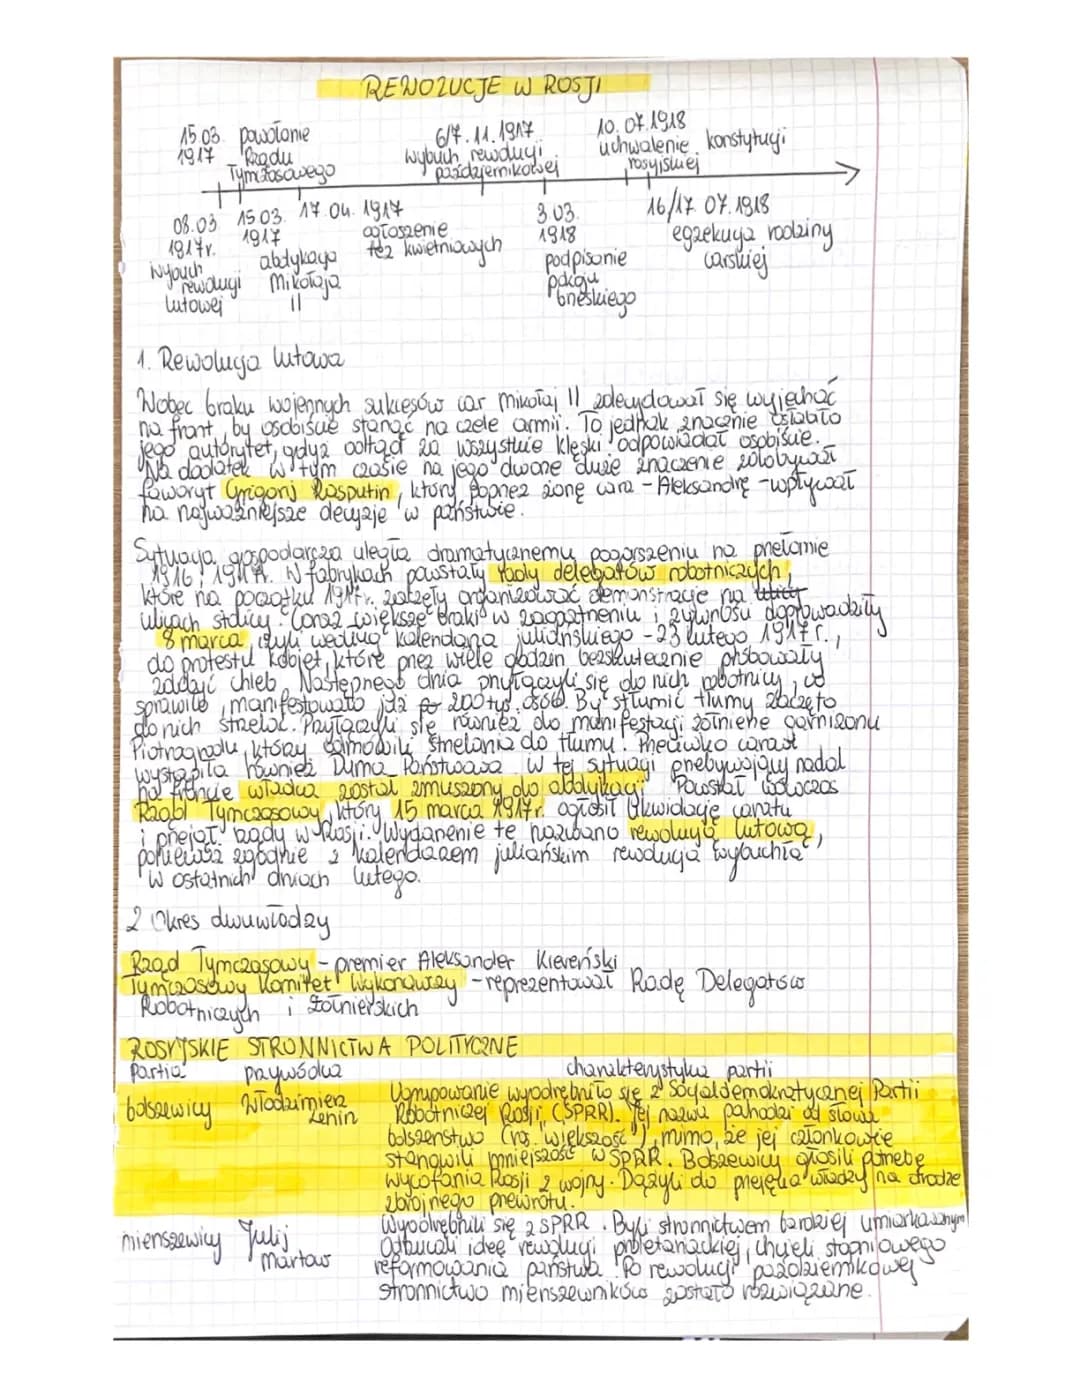 REWOLUCJE W ROSJI
15.03. powołanie
1917 Rządu
Tymczasowego
6/7.11.1917
wybuch rewolucji
październikowej
10.07.1918
uchwalenie konstytucji
rosyjskiej
08.03
1917r.
wybuch
rewolucji
lutowej
15.03.
1917
abdykacja
Mikołaja
II
17.04. 1917
ogłoszenie
tez kwietniowych
3.03.
1918
podpisanie
pokoju
brzeskiego
16/17 07.1918
egzekucja rodziny
carskiej
1. Rewolucja lutowa
Wobec braku wojennych sukcesów car Mikołaj II zdecydował się wyjechać
na front, by osobiście stanąć na czele armii. To jednak znacznie osłabiło
jego autorytet, gdyż odtąd za wszystkie klęski odpowiadał osobiście.
Na dodatek w tym czasie na jego dworze duże znaczenie zdobywał
faworyt Grigorij Rasputin, który poprzez żonę cara - Aleksandrę - wpływał
na najważniejsze decyzje w państwie.
Sytuacja gospodarcza uległa dramatycznemu pogorszeniu na przełomie
1916 i 1917r. W fabrykach powstały rady delegatów robotniczych,
które na początku 1917r. zaczęły organizować demonstracje na
ulicach stolicy. Coraz większe braki w zaopatrzeniu i żywności doprowadziły
8 marca, czyli według kalendarza juliańskiego - 23 lutego 1917r.,
do protestu kobiet, które przez wiele godzin bezskutecznie próbowały
zdobyć chleb. Następnego dnia przyłączyli się do nich robotnicy, co
sprawiło, manifestowało już 200 tys. osób. By stłumić tłumy zaczęto
do nich strzelać. Przyłączyli się również do manifestacji żołnierze garnizonu
Piotrogrodu, którzy odmówili strzelania do tłumu. Przeciwko carowi
wystąpiła również Duma Państwowa. W tej sytuacji przebywający nadal
na froncie władca został zmuszony do abdykacji. Powstał wówczas
Rząd Tymczasowy, który 15 marca 1917r. ogłosił likwidację caratu
i przejął rządy w Rosji. Wydarzenie te nazwano rewolucją lutową,
ponieważ zgodnie z kalendarzem juliańskim rewolucja wybuchła
w ostatnich dniach lutego.
2 Okres dwuwładzy
Rząd Tymczasowy - premier Aleksander Kiereński
Tymczasowy Komitet Wykonawczy - reprezentował Radę Delegatów
Robotniczych i Żołnierskich
ROSYJSKIE STRONNICTWA POLITYCZNE
Partia przywódca charakterystyka partii
bolszewicy Włodzimierz
Lenin
Ugrupowanie wyodrębniło się z Socjaldemokratycznej Partii
Robotniczej Rosji (SPRR). Jej nazwa pochodzi od słowa
bolszenstwo (ros. większość"), mimo, że jej członkowie
stanowili mniejszość w SPRR. Bolszewicy głosili potrzebę
wycofania Rosji z wojny. Dążyli do przejęcia władzy na drodze
zbrojnego przewrotu.
mienszewicy Julij
Martow
Wyodrębnili się z SPRR. Byli stronnictwem bardziej umiarkowanym
Odrzucali ideę rewolucji proletariackiej, chcieli stopniowego
reformowania państwa. Po rewolucji październikowej
stronnictwo mienszewików zostało rozwiązane.